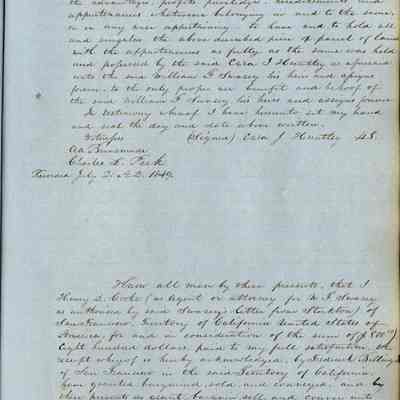 the advantages, profits, privileges, hereditaments and
appurtenances whatsoever belonging or and to the same,
or in any wise appertaining to have and to hold all
and singular the above described piece of parcel of land
with the appurtenances as fully as the same was held
and possessed by the said Ezra J Huntley as aforesaid
unto the said William F Swasey his heirs and assigns
forever to the only proper use benefit and behoof of
the said William F Swasey his heirs and assigns forever
In testimony whereof I have hereunto set my hand
and seal the day and date above written.
Witness (Signed) Ezra J. Huntley
Charles L. Peck
Recorded July 2. A.D. 1849
Know all men by these presents, that I
Henry D. Cooke (as Agent or attorney for W. F. Swasey
as authorized by said Swasey's letter from Stockton) of
San Francisco, Territory of California United States of
America, for and in consideration of the sum of
Eight hundred dollars, paid to my full satisfaction, the
receipt whereof is hereby acknowledged, by Frederick Billings
of San Francisco in the said Territory of California
have granted bargained, sold, and conveyed, and by
these presents do grant, bargain, sell, and convey unto